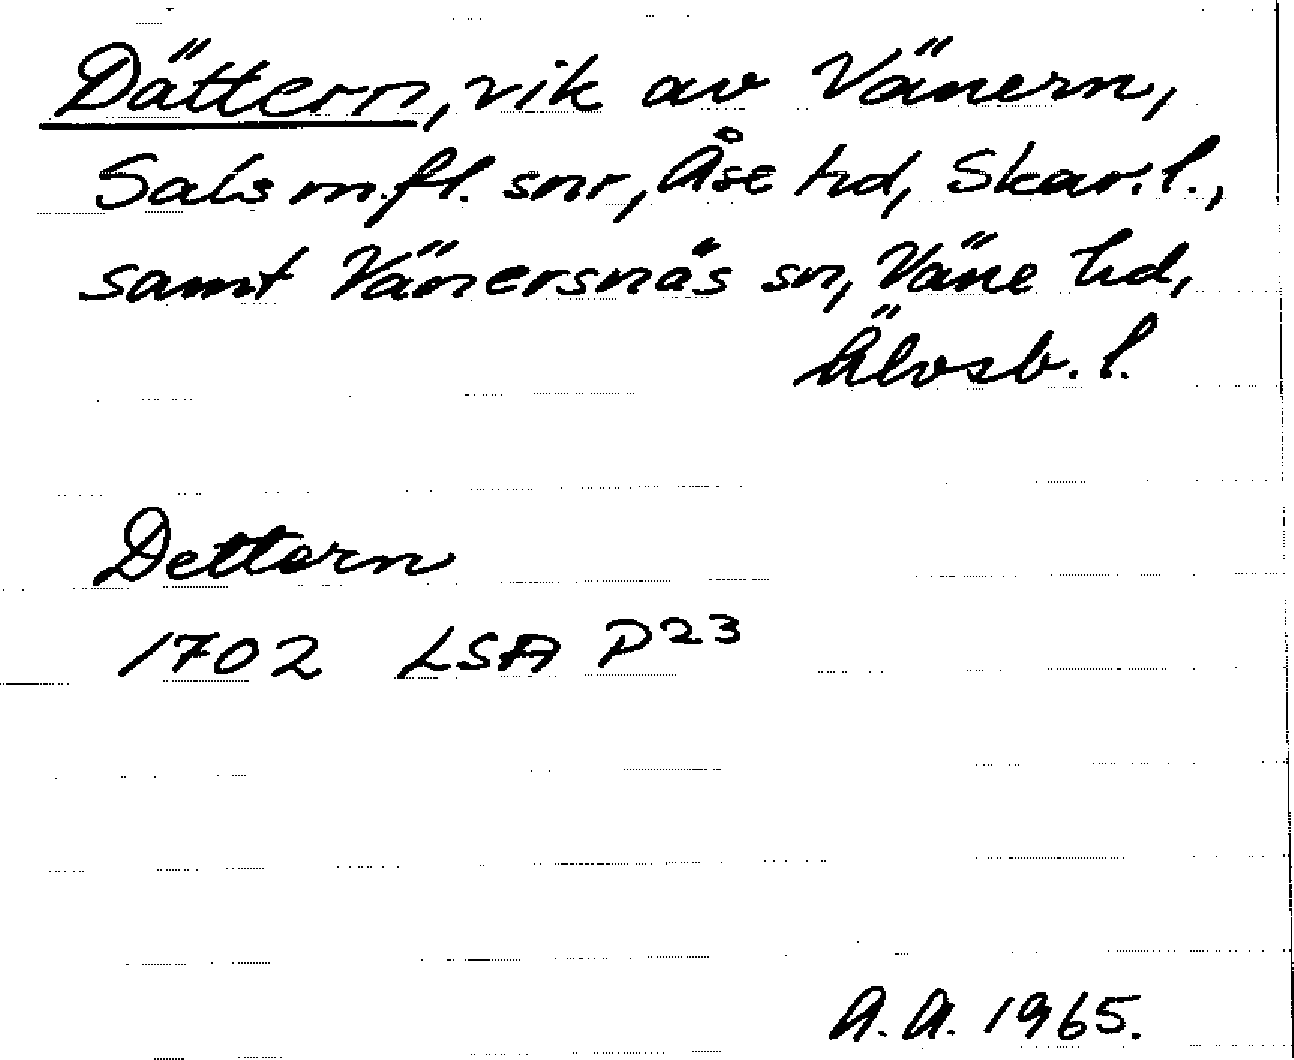 Dättern, vik av Vänern,
Sals m.fl. snr, Åse hd, Skar. l.,
samt Vänersnäs sn, Väne hd,
Älvsb. l.
Dettern
1702 LSA P23
A.A. 1965.